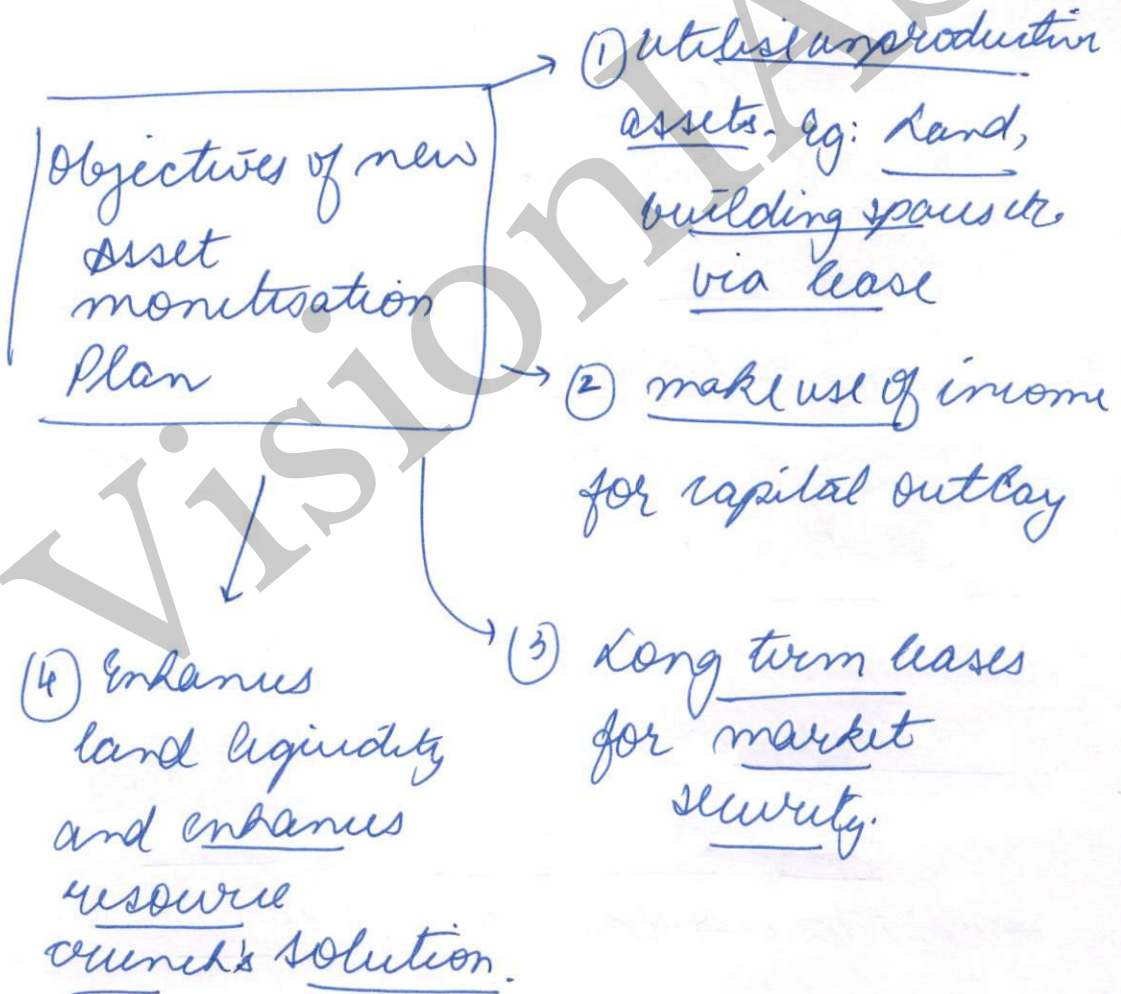 Objectives of new
Asset
monetisation
Plan
① Utilise unproductive
assets. eg: Land,
building spaces etc.
via lease
② make use of income
for capital outlay
③ Long term leases
for market
security.
④ Enhances
land liquidity
and enhances
resource
crunch's solution.
VisionIAS